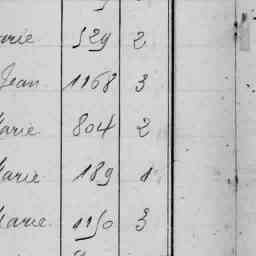 arie 529 2
Jean 1168 3
Marie 804 2
Marie 189 1
Marie 1150 3